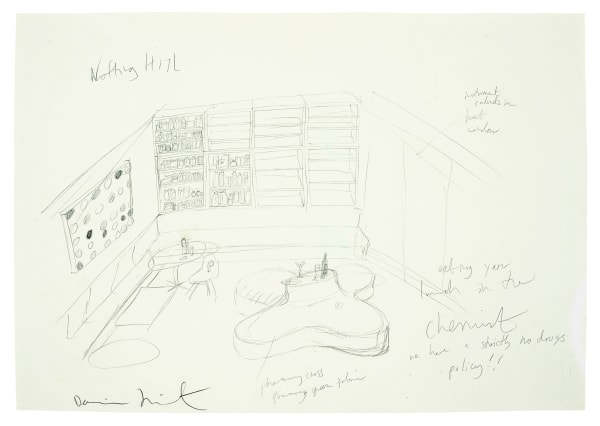 Notting Hill
instrument
cabinets in
front
window
eating your
lunch in the
chemist
we have a strictly no drugs
policy!!
pharmacy cross
pharmacy green fabric
Damien Hirst